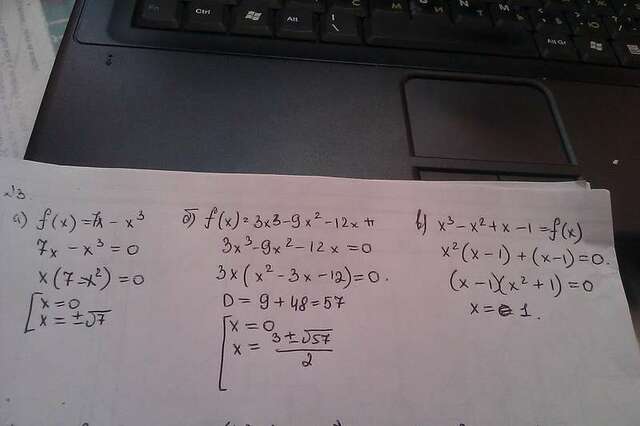 Fn
Ctrl
Alt
Alt Gr
№3.
а) f(x)=7x-x³
7x-x³=0
x(7-x²)=0
[x=0
x=±√7
б) f(x)=3x³-9x²-12x
3x³-9x²-12x=0
3x(x²-3x-12)=0.
D=9+48=57
[x=0
x=3±√57/2
в) x³-x²+x-1=f(x)
x²(x-1)+(x-1)=0.
(x-1)(x²+1)=0
x=1.